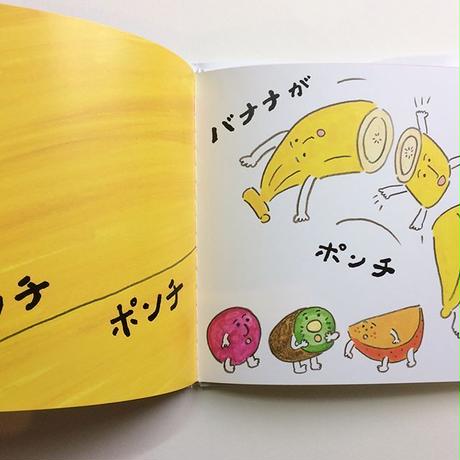 ポンチ
バナナが
ポンチ